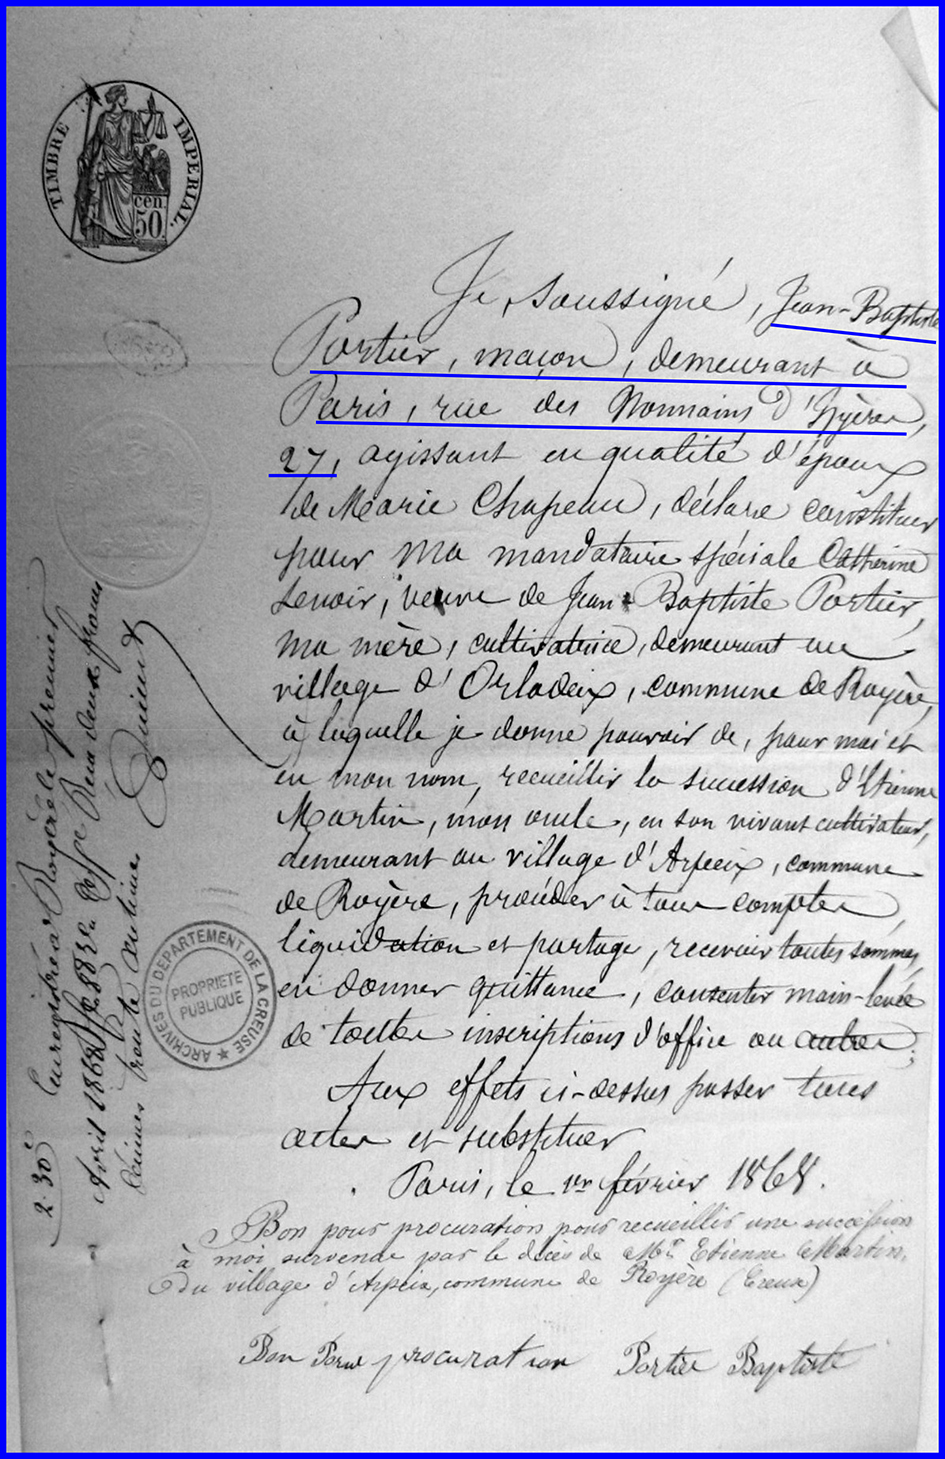 TIMBRE IMPERIAL.
cen.
50.
Je soussigné, Jean-Baptiste
Portier, maçon, demeurant à
Paris, rue des Nonnains d'Hyères,
27, agissant en qualité d'époux
de Marie Chapeau, déclare constituer
pour ma mandataire spéciale Catherine
Lenoir, veuve de Jean-Baptiste Portier,
ma mère, cultivatrice, demeurant au
village d'Orladeix, commune de Royère,
à laquelle je donne pouvoir de, pour moi et
en mon nom, recueillir la succession d'Etienne
Martin, mon oncle, en son vivant cultivateur,
demeurant au village d'Arpeix, commune
de Royère, procéder à tous comptes,
liquidation et partage, recevoir toutes sommes,
en donner quittance, consentir main-levée
de toutes inscriptions d'office ou autres;
Aux effets ci-dessus passer tous
actes et substituer
Paris, le 1er février 1868.
Bon pour procuration pour recueillir une succession
à moi survenue par le décès de Mr Etienne Martin,
du village d'Arpeix, commune de Royère (Creuse)
Bon Pour procuration Portier Baptiste
ARCHIVES DU DEPARTEMENT DE LA CREUSE
PROPRIETE
PUBLIQUE
Enregistré à Royère le premier
Avril 1868 Reçu deux francs
trente centimes
2.30